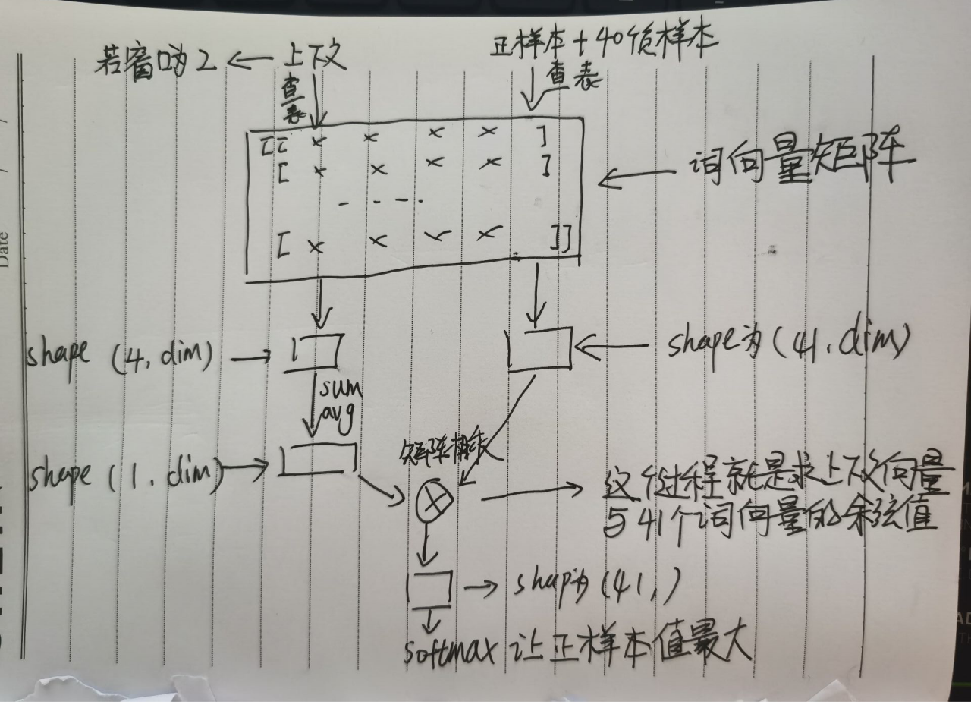 正样本+40负样本
若窗口为2 ← 上下文
查表
查表
[[ × × × × ]
[ × × × × ]
- - - -
[ × × × × ]]
词向量矩阵
shape (4, dim)
shape为(41, dim)
sum
avg
矩阵相乘
shape (1, dim)
这个过程就是求上下文向量
与41个词向量的余弦值
shape为(41,)
softmax 让正样本值最大
Date